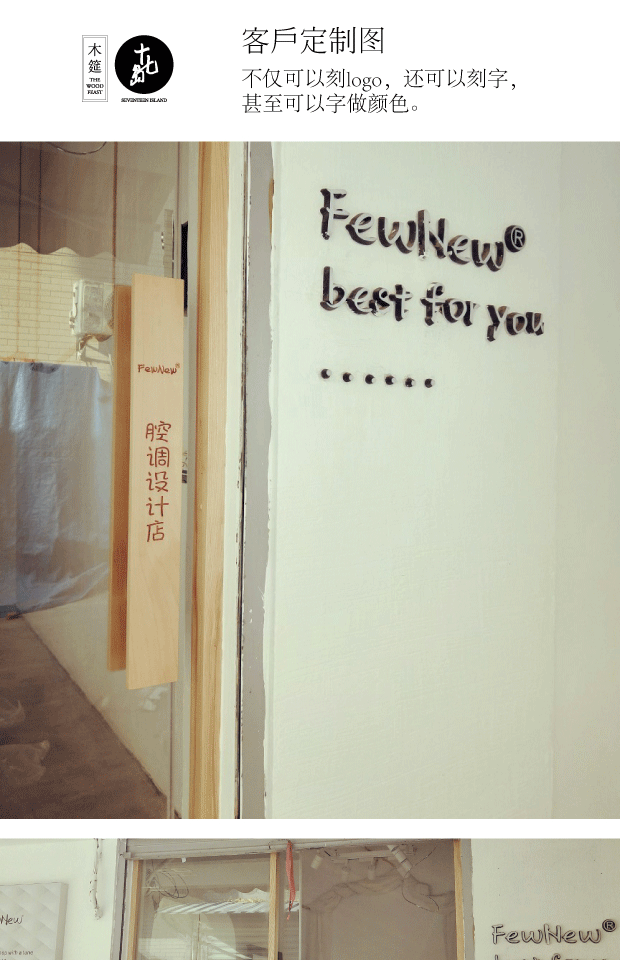 木筵
THE
WOOD
FEAST
SEVENTEEN ISLAND
客戶定制图
不仅可以刻logo，还可以刻字，
甚至可以字做颜色。
FewNew®
best for you
......
FewNew®
腔调设计店
New
FewNew®